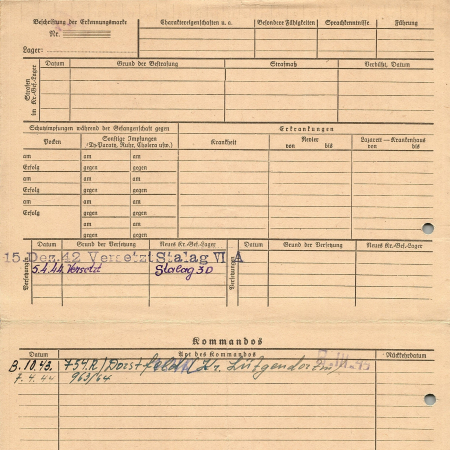 Beschriftung der Erkennungsmarke
Nr.
Lager:
Charaktereigenschaften u. a.
Besondere Fähigkeiten
Sprachkenntnisse
Führung
Strafen im Kr.-Gef.-Lager
Datum
Grund der Bestrafung
Strafmaß
Verbüßt, Datum
Schutzimpfungen während der Gefangenschaft gegen
Erkrankungen
Pocken
Sonstige Impfungen
(Ty-Paraty, Ruhr, Cholera usw.)
Krankheit
Revier
von bis
Lazarett — Krankenhaus
von bis
am am am
Erfolg gegen gegen
am am am
Erfolg gegen gegen
am am am
Erfolg gegen gegen
am am am
Erfolg gegen gegen
am am
gegen gegen
Versetzungen
Datum
Grund der Versetzung
Neues Kr.-Gef.-Lager
Versetzungen
Datum
Grund der Versetzung
Neues Kr.-Gef.-Lager
15. Dez. 42 Versetzt Stalag VI A
5.4.44 Versetzt Stalag 3D
Kommandos
Datum
Art des Kommandos
Rückkehrdatum
8.10.43. 754 R / Dorstfeld
7.4.44 963/64